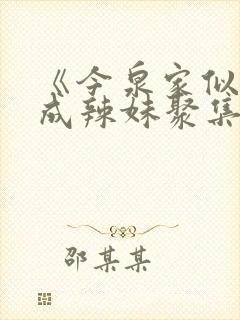 《今泉家似
成辣妹聚集
邵某某